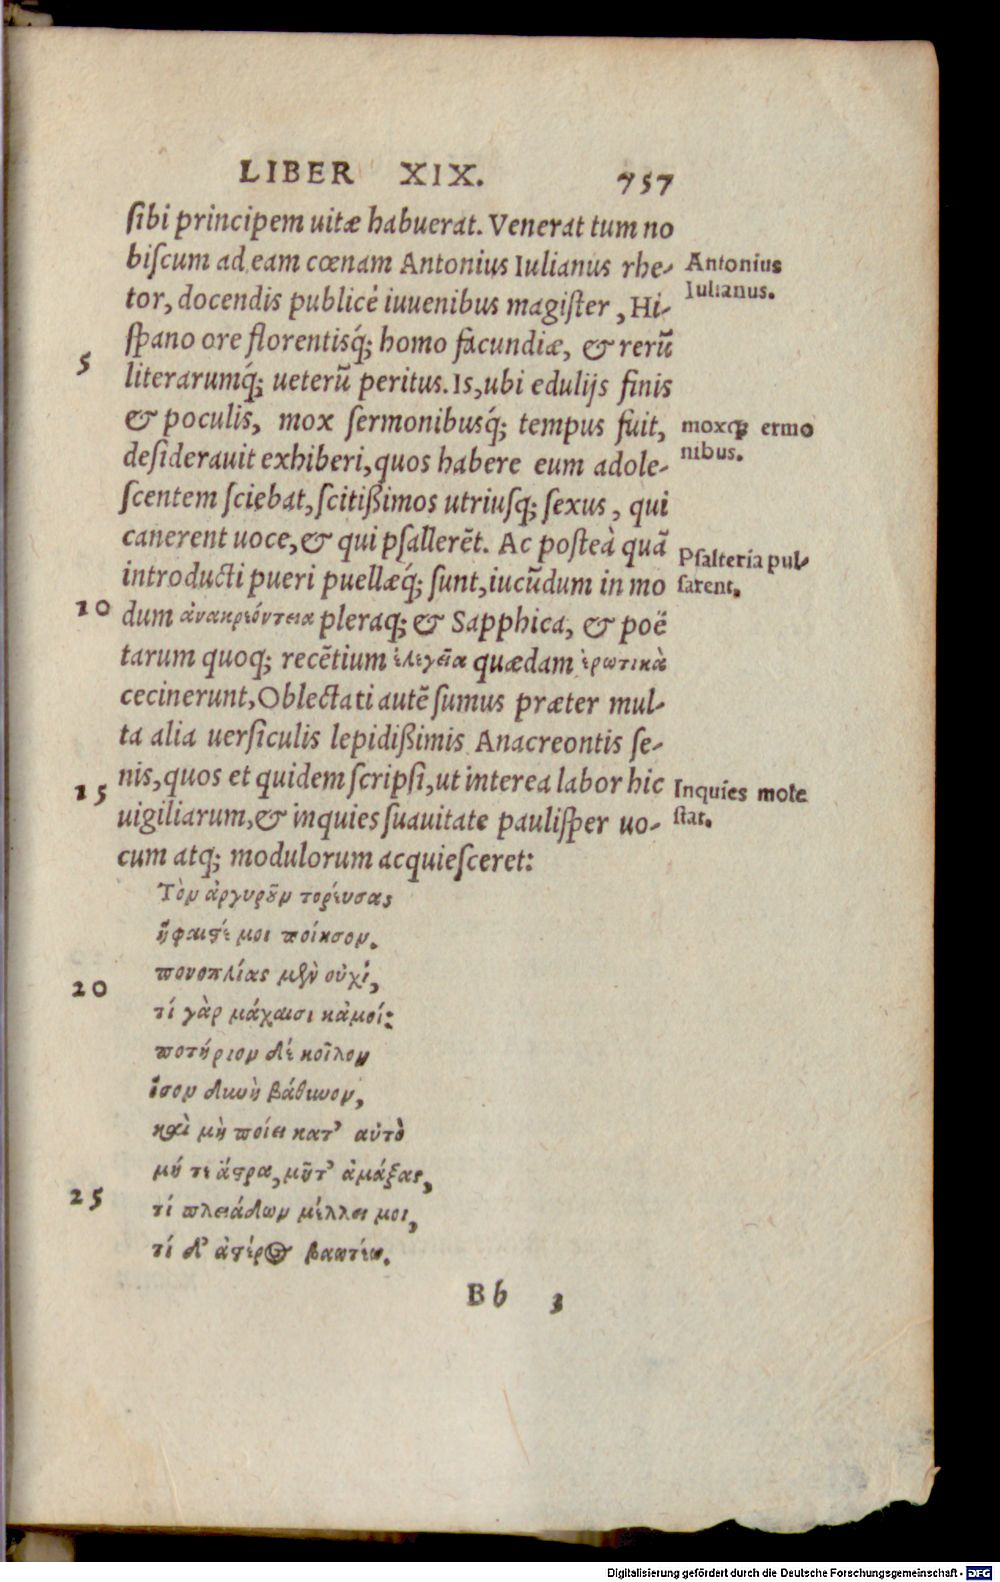 LIBER XIX. 757
ſibi principem uitæ habuerat. Venerat tum no
biſcum ad eam cœnam Antonius Iulianus rhe-
Antonius
Iulianus.
tor, docendis publicè iuuenibus magiſter, Hi-
ſpano ore florentisq́; homo facundiæ, & rerũ
5
literarumq́; ueterũ peritus. Is, ubi edulijs finis
& poculis, mox ſermonibusq́; tempus fuit,
moxq́; ermo
nibus.
deſiderauit exhiberi, quos habere eum adole-
ſcentem ſciebat, ſcitißimos utriuſq; ſexus, qui
canerent uoce, & qui pſallerẽt. Ac poſteà quã
Pſalteria pul-
ſarent.
introducti pueri puellæq́; ſunt, iucũdum in mo
10
dum ἀνακρεόντεια pleraq; & Sapphica, & poë
tarum quoq; recẽtium ἐλεγεῖα quædam ἐρωτικὰ
cecinerunt, Oblectati autẽ ſumus præter mul-
ta alia uerſiculis lepidißimis Anacreontis ſe-
nis, quos et quidem ſcripſi, ut interea labor hic
15
Inquies mole
ſtat.
uigiliarum, & inquies ſuauitate pauliſper uo-
cum atq; modulorum acquieſceret:
Τὸν ἀργυροῦν τορεύσας
ἥφαιστέ μοι ποίησον.
πονοπλίας μὲν οὐχί,
20
τί γὰρ μάχαισι κἀμοί;
ποτήριον δὲ κοῖλον
ὅσον δυνὴ βάθυνον,
καὶ μὴ ποίει κατ' αὐτὸ
μή τε ἄστρα, μῆτ' ἁμάξας,
25
τί πλειάδων μέλλει μοι,
τί δ' ἀστέρος βαωτέω.
Bb 3
Digitalisierung gefördert durch die Deutsche Forschungsgemeinschaft - DFG